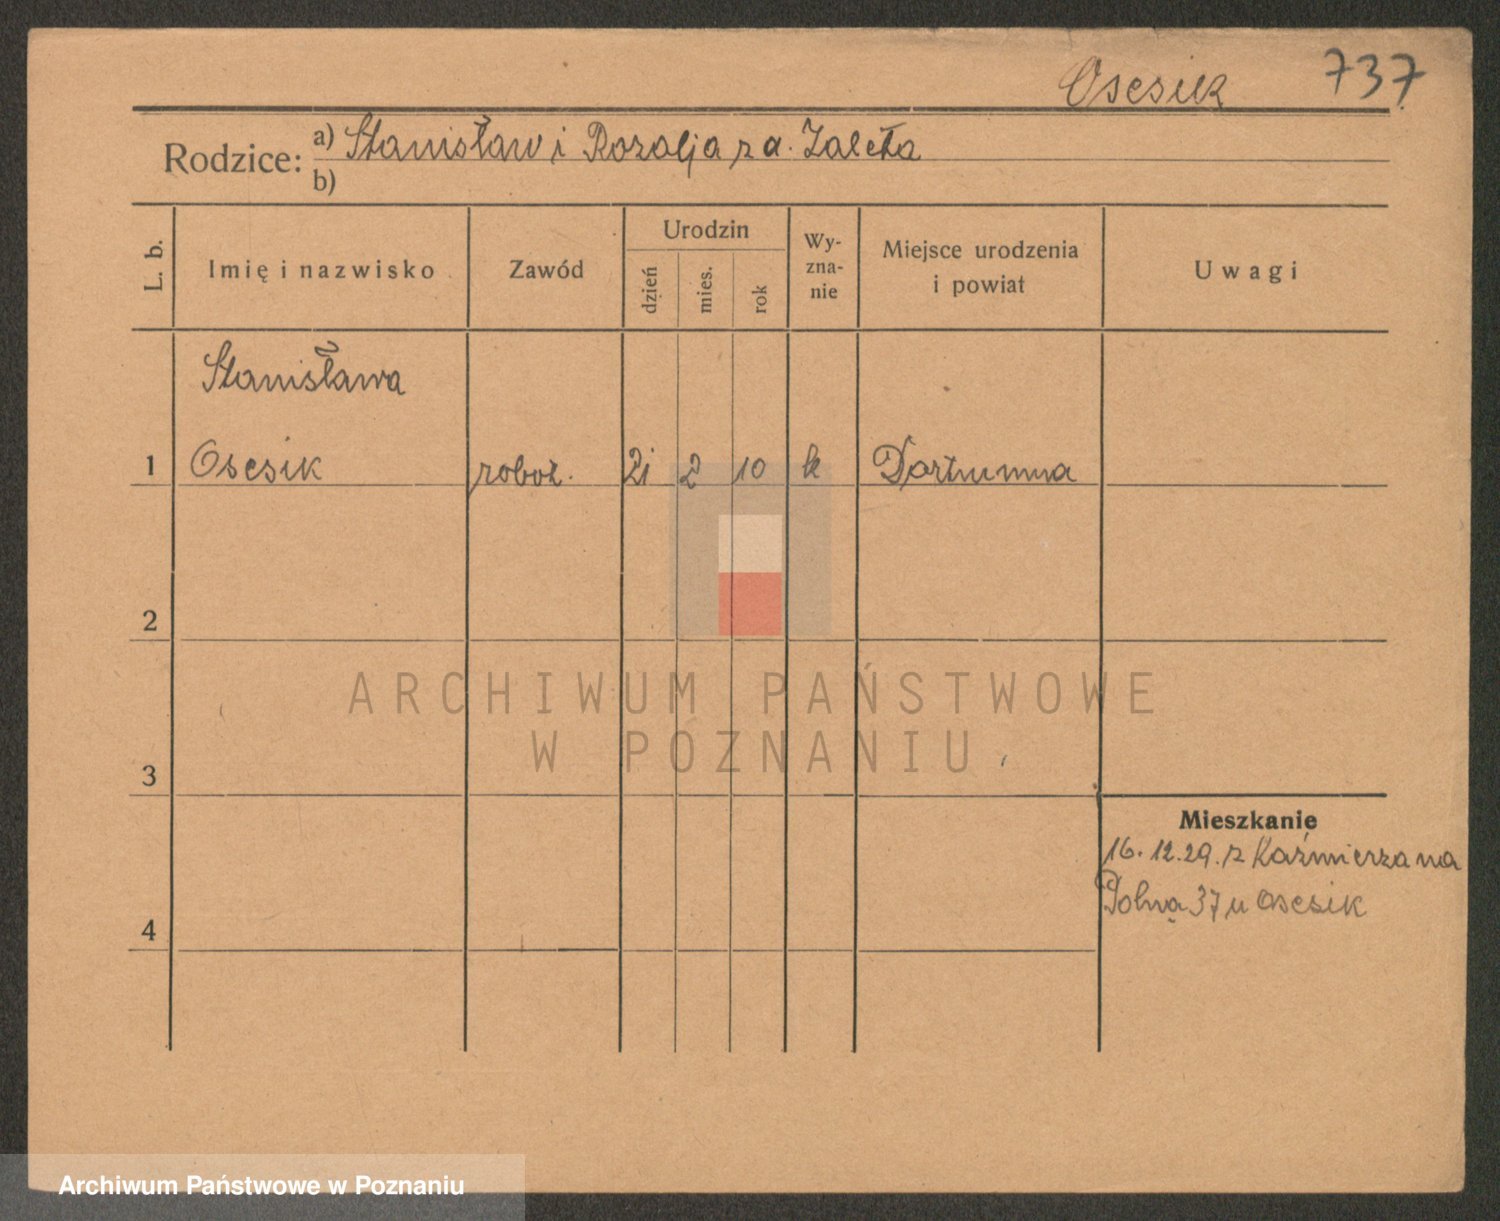 Osesik 737
Rodzice: a) Stanisław i Rozalja z d. Zaleta
b)
L. b. Imię i nazwisko Zawód Urodzin dzień mies. rok Wyzna-nie Miejsce urodzenia i powiat Uwagi
Stanisława
1 Osesik robot. 21 2 10 k Dortmuna
2
ARCHIWUM PAŃSTWOWE
W POZNANIU
3
Mieszkanie
16.12.29. z Kaźmierza na
Polną 37 u Osesik
4
Archiwum Państwowe w Poznaniu